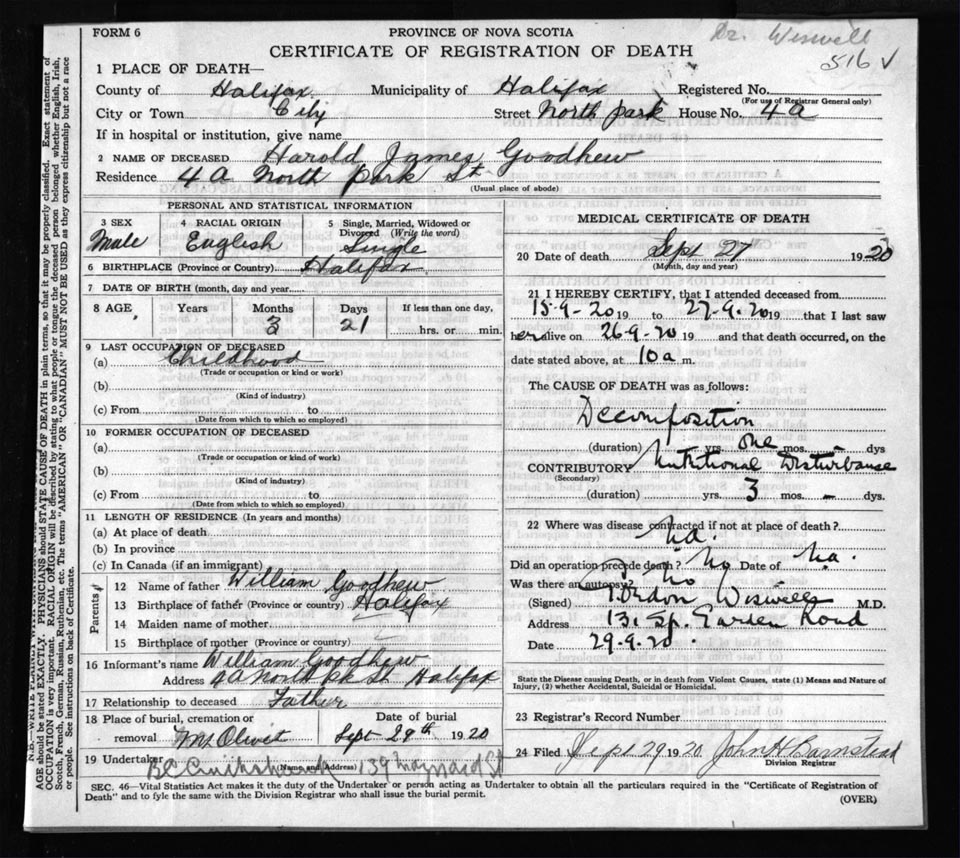 FORM 6
PROVINCE OF NOVA SCOTIA
Dr. Wiswell
516 ✓
CERTIFICATE OF REGISTRATION OF DEATH
1 PLACE OF DEATH—
County of Halifax Municipality of Halifax Registered No.
(For use of Registrar General only)
City or Town City Street North Park House No. 4A
If in hospital or institution, give name
2 NAME OF DECEASED Harold James Goodhew
Residence 4A North Park St
(Usual place of abode)
PERSONAL AND STATISTICAL INFORMATION
3 SEX 4 RACIAL ORIGIN 5 Single, Married, Widowed or Divorced (Write the word)
Male English Single
6 BIRTHPLACE (Province or Country) Halifax
7 DATE OF BIRTH (month, day and year)
8 AGE Years Months Days If less than one day,
3 21 hrs. or min.
9 LAST OCCUPATION OF DECEASED
(a) Childhood
(Trade or occupation or kind of work)
(b)
(Kind of industry)
(c) From to
(Date from which to which so employed)
10 FORMER OCCUPATION OF DECEASED
(a)
(Trade or occupation or kind of work)
(b)
(Kind of industry)
(c) From to
(Date from which to which so employed)
11 LENGTH OF RESIDENCE (In years and months)
(a) At place of death
(b) In province
(c) In Canada (if an immigrant)
Parents
12 Name of father William Goodhew
13 Birthplace of father (Province or country) Halifax
14 Maiden name of mother
15 Birthplace of mother (Province or country)
16 Informant's name William Goodhew
Address 4A North Pk St Halifax
17 Relationship to deceased Father
18 Place of burial, cremation or removal Mt Olivet
Date of burial Sept 29th 1920
19 Undertaker B.C. Cruikshank (Name and Address) 139 Maynard St
MEDICAL CERTIFICATE OF DEATH
20 Date of death Sept 27 1920
(Month, day and year)
21 I HEREBY CERTIFY, that I attended deceased from
15-9-20 19 to 27-9-20 19 that I last saw
her alive on 26-9-20 19 and that death occurred, on the
date stated above, at 10 a m.
The CAUSE OF DEATH was as follows:
Decomposition
(duration) yrs. one mos. dys
CONTRIBUTORY Nutritional Disturbance
(Secondary)
(duration) yrs. 3 mos. - dys.
22 Where was disease contracted if not at place of death?
Did an operation precede death? No Date of
Was there an autopsy? No
(Signed) Gordon Wiswell M.D.
Address 131 Sp. Garden Road
Date 29-9-20
State the Disease causing Death, or in death from Violent Causes, state (1) Means and Nature of
Injury, (2) whether Accidental, Suicidal or Homicidal.
23 Registrar's Record Number
24 Filed Sept 29 1920 John H Barnstead
Division Registrar
SEC. 46—Vital Statistics Act makes it the duty of the Undertaker or person acting as Undertaker to obtain all the particulars required in the "Certificate of Registration of
Death" and to fyle the same with the Division Registrar who shall issue the burial permit.
(OVER)
AGE should be stated EXACTLY. PHYSICIANS should STATE CAUSE OF DEATH in plain terms, so that it may be properly classified. Exact statement of
OCCUPATION is very important. RACIAL ORIGIN will be described by stating to what people or tongue the deceased person belonged whether English, Irish,
Scotch, French, German, Russian, Ruthenian, etc. The terms "AMERICAN" OR "CANADIAN" MUST NOT BE USED as they express citizenship but not a race
or people. See instructions on back of Certificate.